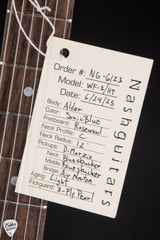 Nashguitars
Order #: NG-6123
Model: WF-3/HT
Date: 6/24/23
Body: Alder
Color: Sonic Blue
Fretboard: Rosewood
Neck Profile: C
Radius: 12"
Pickups: D. Marcia
Neck: Bluesbucker
Middle:
Bridge: Bluesbucker
Bridge: Air Norton
Aging: Light
Pickguard: 3-Ply Pearl